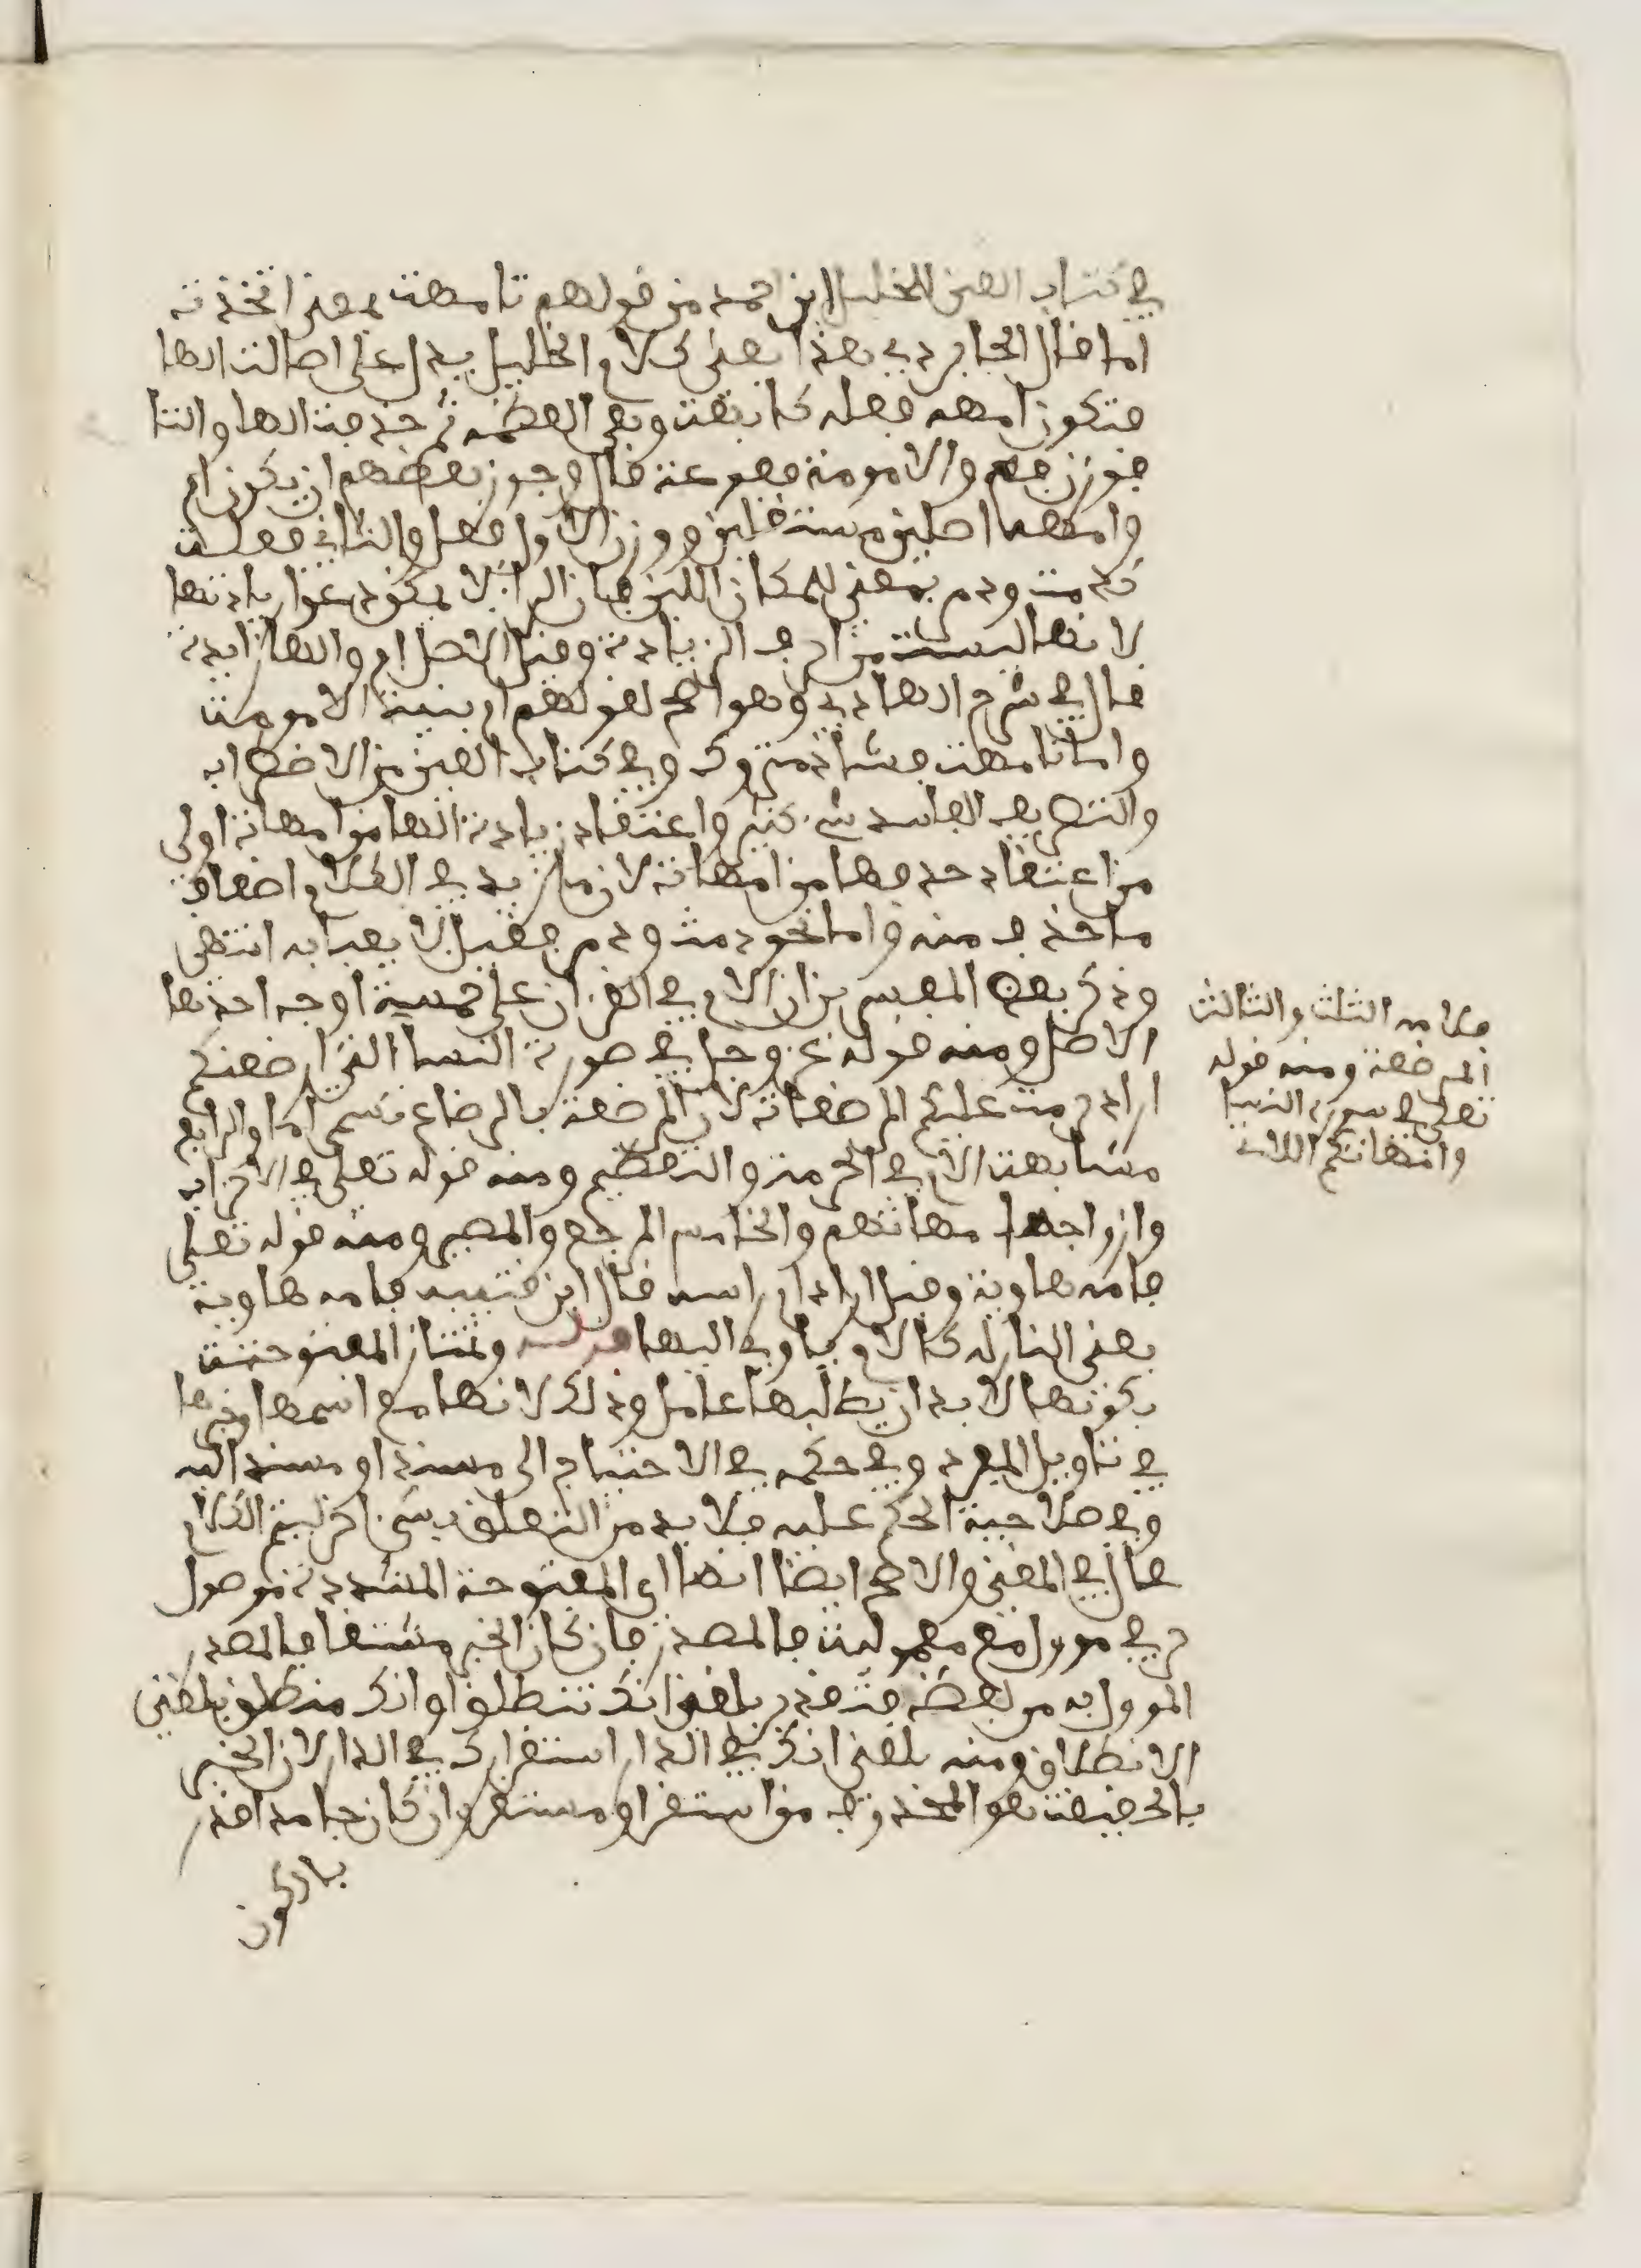 في كتاب العين للخليل ابن احمد من قولهم تامهت بمعنى اتخذته
اما قال الجابردي هذا يعني كلام الخليل يدل على اصالت الها
فتكون امهه فعله كابهت وهي العظمه ثم حذفت الها والتا
فوزن فع والامومة فعوعة قال وجوز بعضهم ان يكون ام
وامهه اصلين مستقلين ووزن الاول فعل والثاني فعلت
كدمت ودم بمعنى للمكان اللين فان الرا لا يمكن دعوا زيادتها
لانها ليست من احرف الزيادة وقيل الاصل ام والها زايدة
قال في شرح الهادي وهو الاصح لقولهم ام بينة الامومت
واما تامهت فشاذ متروك وفي كتاب العين من الاضطراب
والتصريف الفاسد شي كثير واعتقاد زيادة الها من امهاته اولى
من اعتقاد حذفها من امهاته لان ما زيد في الكلام اضعاف
ما حذف منه واما نحو دمث ودم فقليل لا يعبا به انتهى
وذكر بعض المفسرين ان الام في القران على خمسة اوجه احدها
الاصل ومنه قوله عز وجل في صورة النسا التي ارضعنكم
اراد حرمت عليكم المرضعاة لان المرضعة بالرضاع تسمى اما والرابع
مشابهت الام في الحرمة والتعظيم ومنه قوله تعلى في الاحزاب
وازواجه امهاتهم والخامس المرجع والمصير ومنه قوله تعلى
فامه هاوية وقيل اراد ام راسه قال ابن قتيبه فامه هاوية
يعني النار له كالام ياوي اليها وتمتاز المفتوحت
بكونها لا بد ان يطلبها عامل وذلك لانها مع اسمها وخبرها
في تاويل المفرد وفي حكمه في الاحتياج الى مسند او مسند اليه
وفي صلاحية الحكم عليه فلا بد من التعلق بشيء اخر ليتم الكلام
قال في المغني والاصح ايضا انها اي المفتوحة المشددة موصول
حرفي موول مع معموليه فالمصدر فان كان الخبر مشتقا فالمصدر
الموول به من لفظه فتقدر بلغني انك تنطلق او انك منطلق بلغني
الانطلاق ومنه بلغني انك في الدار استقرارك في الدار لان الخبر
بالحقيقت هو المحذوف من استقر او مستقر وان كان جامدا قدر
بالكون
فلا مه الثلث والثالث
المرضعة ومنه قوله
تعلى في سورة النسا
وامهاتكم اللات